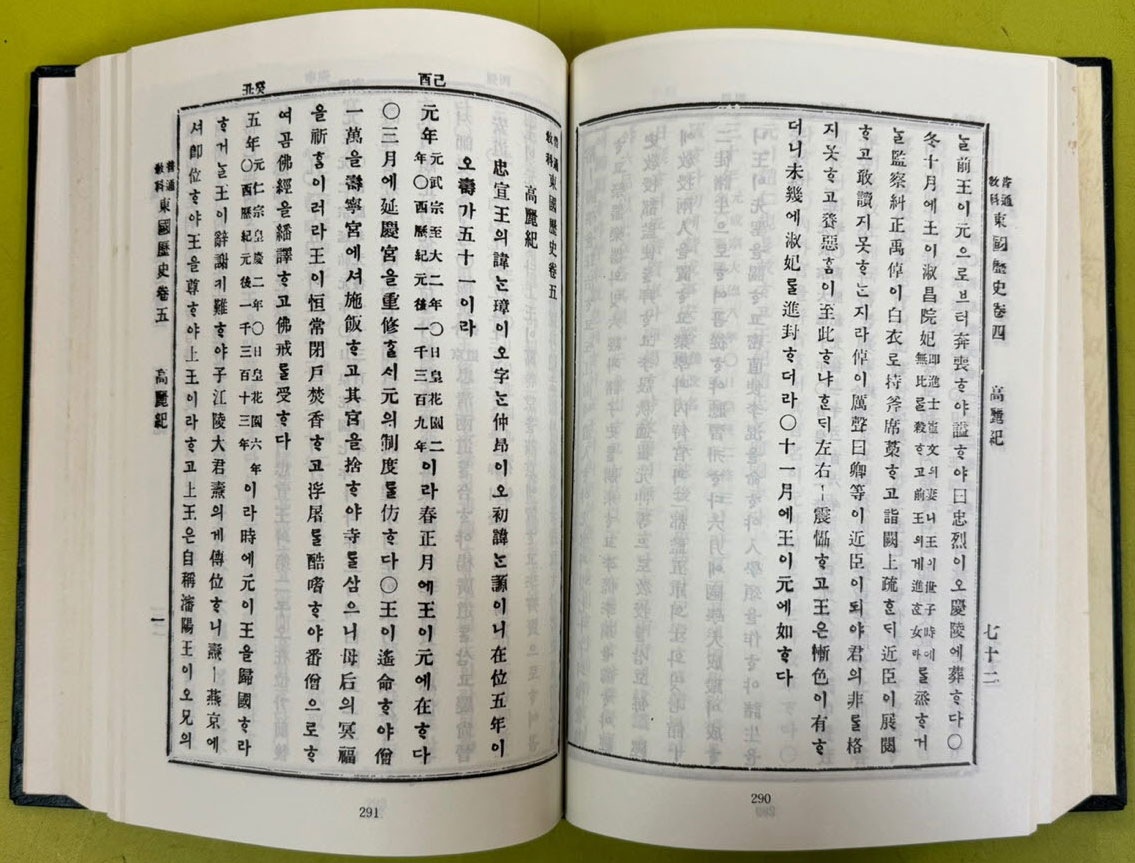 普通教科 東國歷史卷四 高麗紀 七十二
늘前王이元으로브터奔喪ᄒᆞ야諡ᄒᆞ야曰忠烈이오慶陵에葬ᄒᆞ다〇
冬十月에王이淑昌院妃即進士崔文의妻니王의世子時에無比를殺ᄒᆞ고前王의게進ᄒᆞᆫ女라를烝ᄒᆞ거
ᄂᆞᆯ監察糾正禹倬이白衣로持斧席藁ᄒᆞ고詣闕上疏ᄒᆞᆫᄃᆡ近臣이展閱
ᄒᆞ고敢讀지못ᄒᆞᄂᆞᆫ지라倬이厲聲曰卿等이近臣이되야君의非를格
지못ᄒᆞ고養惡홈이至此ᄒᆞ냐ᄒᆞᆫᄃᆡ左右ㅣ震慴ᄒᆞ고王은慚色이有ᄒᆞ
더니未幾에淑妃를進封ᄒᆞ더라〇十一月에王이元에如ᄒᆞ다
290
普通教科東國歷史卷五
高麗紀
忠宣王의諱ᄂᆞᆫ璋이오字ᄂᆞᆫ仲昂이오初諱ᄂᆞᆫ謜이니在位五年이
오壽가五十一이라
己酉
元年元武宗至大二年〇日皇花園二年〇西歷紀元後一千三百九年이라春正月에王이元에在ᄒᆞ다
〇三月에延慶宮을重修ᄒᆞᆯᄉᆡ元의制度를仿ᄒᆞ다〇王이遙命ᄒᆞ야僧
一萬을壽寧宮에셔施飯ᄒᆞ고其宮을捨ᄒᆞ야寺를삼으니母后의冥福
을祈홈이러라王이恒常閉戶焚香ᄒᆞ고浮屠를酷嗜ᄒᆞ야番僧으로ᄒᆞ
여곰佛經을繙譯ᄒᆞ고佛戒를受ᄒᆞ다
癸丑
五年元仁宗皇慶二年〇日皇花園六年〇西歷紀元後一千三百十三年이라時에元이王을歸國ᄒᆞ라
ᄒᆞ거ᄂᆞᆯ王이辭謝키難ᄒᆞ야子江陵大君燾의게傳位ᄒᆞ니燾ㅣ燕京에
셔即位ᄒᆞ야王을尊ᄒᆞ야上王이라ᄒᆞ고上王은自稱瀋陽王이오兄의
普通教科 東國歷史卷五 高麗紀 一
291